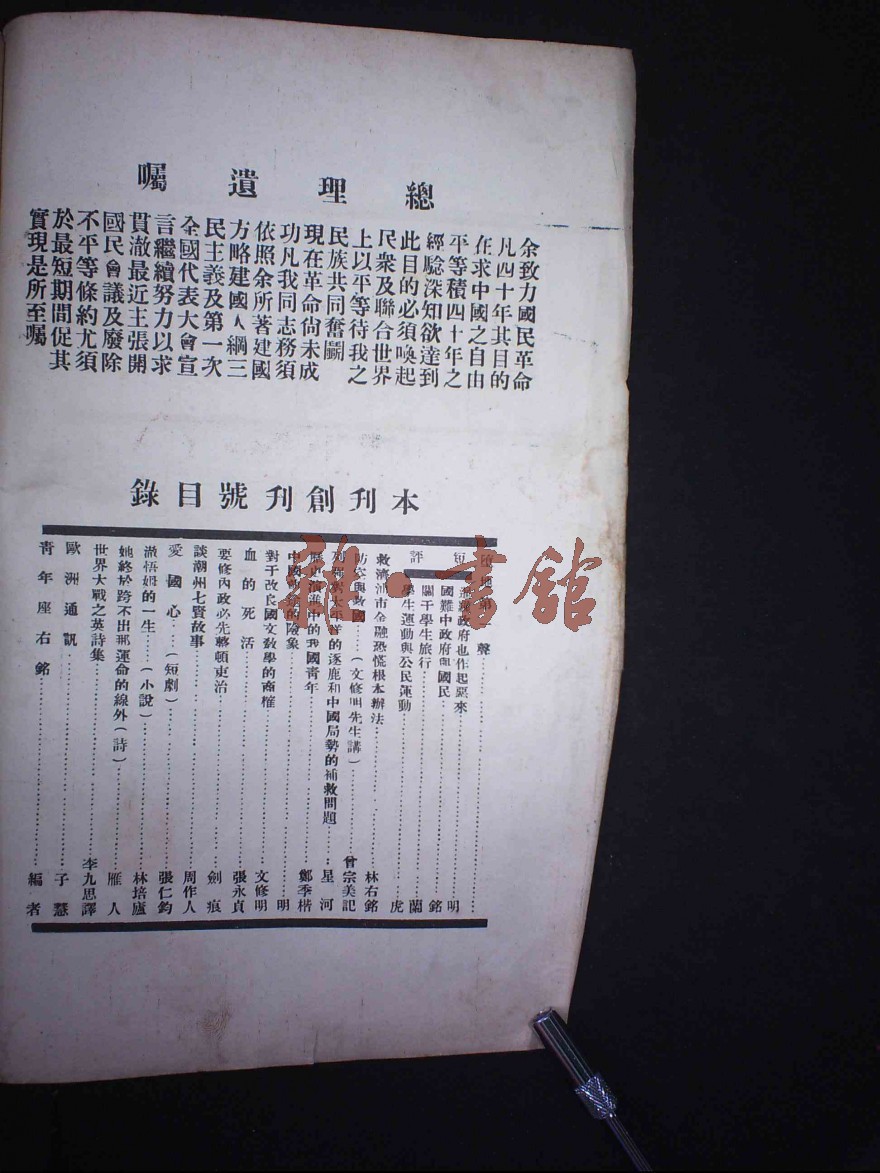 總理遺囑
余致力國民革命
凡四十年其目的
在求中國之自由
平等積四十年之
經驗深知欲達到
此目的必須喚起
民衆及聯合世界
上以平等待我之
民族共同奮鬭
現在革命尙未成
功凡我同志務須
依照余所著建國
方略建國大綱三
民主義及第一次
全國代表大會宣
言繼續努力以求
貫澈最近主張開
國民會議及廢除
不平等條約尤須
於最短期間促其
實現是所至囑
本刋創刋號目錄
墮地第一聲
短評
政府也作起惡來……明
國難中政府與國民……銘
關于學生旅行……蘭
學生運動與公民運動……虎
救濟汕市金融恐慌根本辦法……林右銘
防災與救國……(文修明先生講)……曾宗美記
太平洋的逐鹿和中國局勢的補救問題……星河
歷史演進中的我國青年……鄭季楷
中國前途的險象……明
對于改良國文敎學的商榷……文修明
血的死活……張永貞
要修內政必先轉頓吏治……劍痕
談潮州七賢故事……周作人
愛國心……(短劇)……張仁鈞
澈悟姆的一生……(小說)……林培廬
她終於跨不出那運命的線外(詩)……雁人
世界大戰之英詩集……李九思譯
歐洲通訊……子慧
靑年座右銘……編者
雜·書館